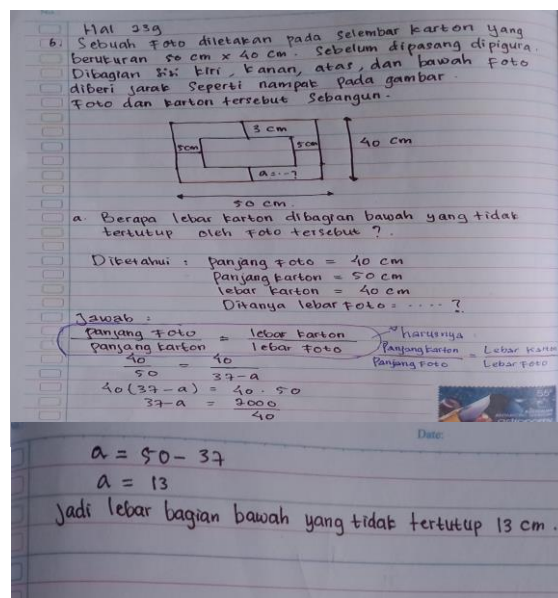 Hal 239
6. Sebuah Foto diletakan pada selembar karton yang
berukuran 50 cm x 40 cm. Sebelum dipasang dipigura.
Dibagian sisi kiri, kanan, atas, dan bawah Foto
diberi jarak seperti nampak pada gambar.
Foto dan karton tersebut sebangun.
3 cm
5cm
5cm
40 cm
a=...?
50 cm.
a. Berapa lebar karton dibagian bawah yang tidak
tertutup oleh Foto tersebut ?
Diketahui : Panjang Foto = 40 cm
Panjang karton = 50 cm
lebar karton = 40 cm
Ditanya lebar Foto = ..... ?
Jawab :
panjang Foto / panjang karton = lebar karton / lebar Foto
harusnya
Panjang karton / Panjang Foto = Lebar karton / Lebar Foto
40 / 50 = 40 / 37-a
40 (37-a) = 40 . 50
37-a = 2000 / 40
Date:
a = 50 - 37
a = 13
Jadi lebar bagian bawah yang tidak tertutup 13 cm.